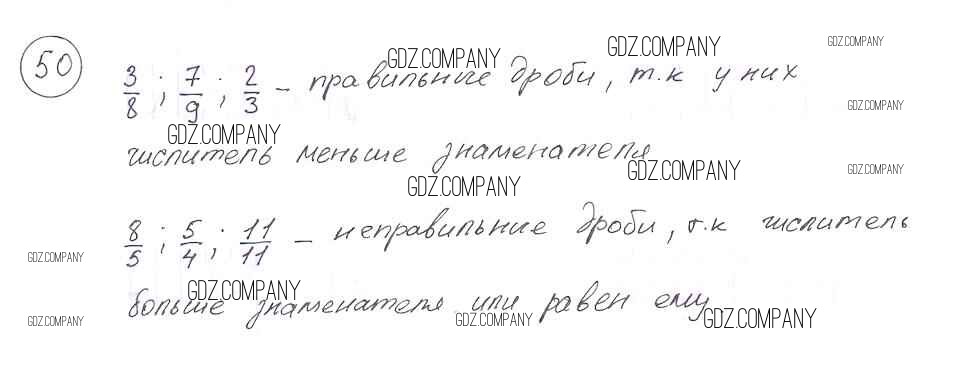 50
3/8 ; 7/9 ; 2/3 – правильные дроби, т.к у них
числитель меньше знаменателя
8/5 ; 5/4 ; 11/11 – неправильные дроби, т.к числитель
больше знаменателя или равен ему
GDZ.COMPANY
GDZ.COMPANY
GDZ.COMPANY
GDZ.COMPANY
GDZ.COMPANY
GDZ.COMPANY
GDZ.COMPANY
GDZ.COMPANY
GDZ.COMPANY
GDZ.COMPANY
GDZ.COMPANY
GDZ.COMPANY
GDZ.COMPANY